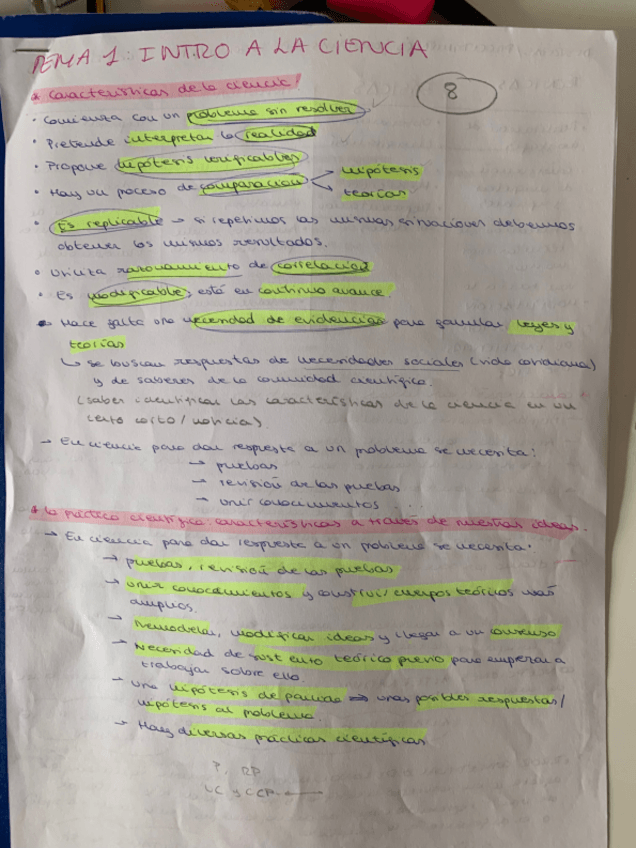 TEMA 1: INTRO A LA CIENCIA
* Características de la ciencia:
8
· Comienza con un problema sin resolver
· Pretende interpretar la realidad
· Propone hipótesis verificables
· Hay un proceso de comparación < hipótesis
teorías
· Es replicable → si repetimos las mismas situaciones debemos
obtener los mismos resultados.
· Utiliza razonamiento de correlación
· Es modificable, está en continuo avance.
· Hace falta una necesidad de evidencias para formular leyes y
teorías
↳ se buscan respuestas de necesidades sociales (vida cotidiana)
y de saberes de la comunidad científica.
(saber identificar las características de la ciencia en un
texto corto / noticia).
→ En ciencia para dar respuesta a un problema se necesita:
→ pruebas
→ revisión de las pruebas
→ unir conocimientos
* La práctica científica: características a través de nuestras ideas.
→ En ciencia para dar respuesta a un problema se necesita:
→ pruebas, revisión de las pruebas
→ unir conocimientos y construir cuerpos teóricos más
amplios.
→ Remodelar, modificar ideas y llegar a un consenso
→ Necesidad de sustento teórico previo para empezar a
trabajar sobre ello.
→ Una hipótesis de partida ⇒ unas posibles respuestas /
hipótesis al problema
→ Hay diversas prácticas científicas
P, RP
LC y CCP